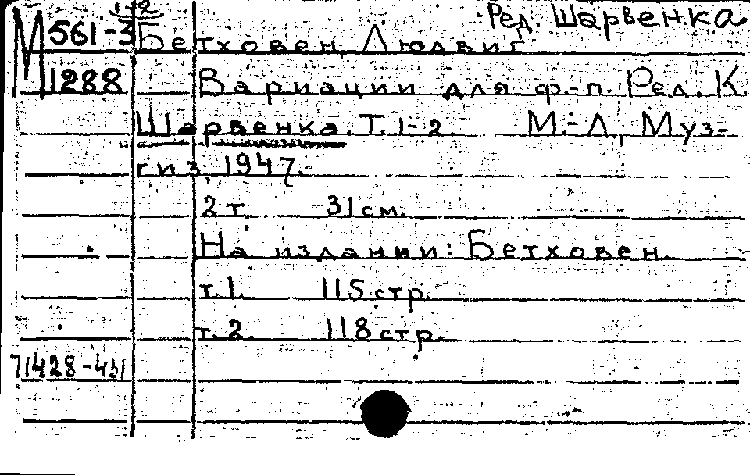 1-2
Ред. Шарвенка
М 561-3 Бетховен, Людвиг
1288 Вариации для ф-п. Ред. К.
Шарвенка. Т. 1-2. М.-Л., Муз-
гиз, 1947.-
2 т. 31 см.
На издании: Бетховен.
т. 1. 115 стр.
т. 2. 118 стр.